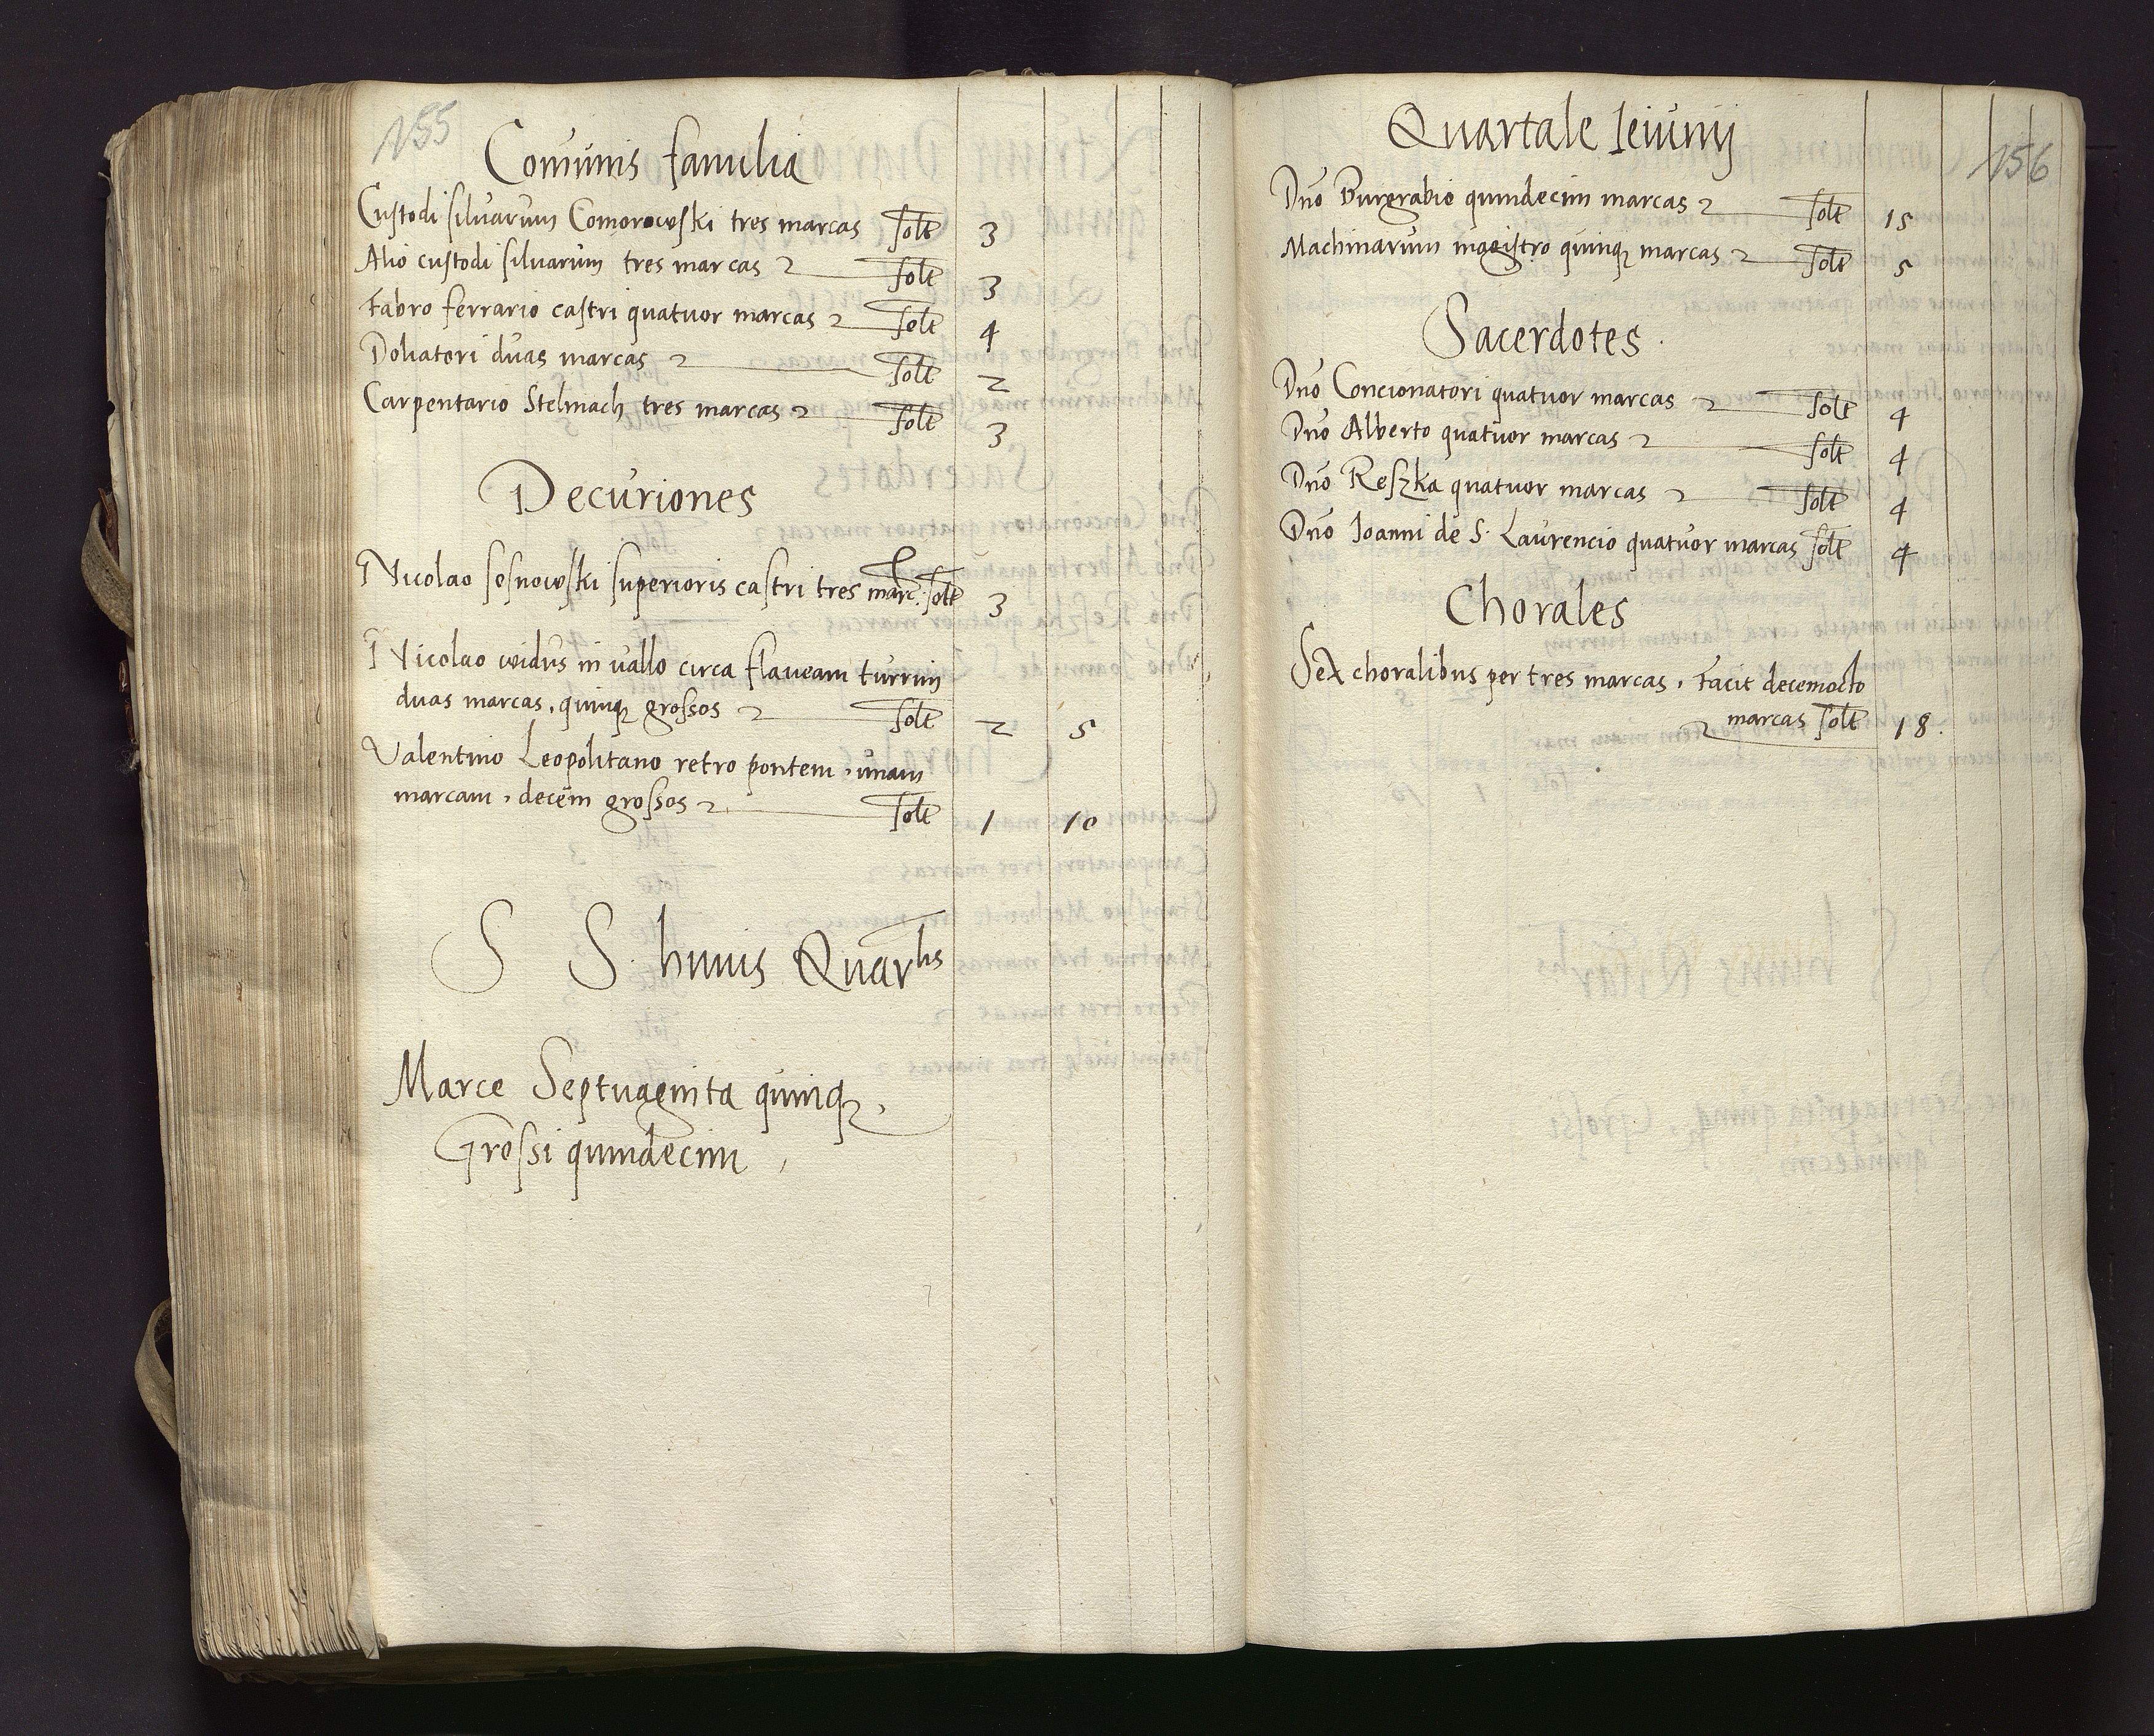 155
Comunis familia
Custodi siluarum Comorowski tres marcas solt 3
Alio custodi siluarum tres marcas solt 3
Fabro ferrario castri quatuor marcas solt 4
Doliatori duas marcas solt 2
Carpentario Stelmach tres marcas solt 3
Decuriones
Nicolao sosnowski superioris castri tres marc: solt 3
Nicolao widus in vallo circa flaueam turrim
duas marcas, quinqꝫ grossos solt 2 5
Valentino Leopolitano retro pontem, unam
marcam, decem grossos solt 1 10
S S. huius Quartlis
Marce Septuaginta quinqꝫ,
Grossi quindecim,
156
Quartale Ieiunij
Dno Burgrabio quindecim marcas solt 15
Machinarum magistro quinqꝫ marcas solt 5
Sacerdotes
Dno Concionatori quatuor marcas solt 4
Dno Alberto quatuor marcas solt 4
Dno Reszka quatuor marcas solt 4
Dno Ioanni de S. Laurencio quatuor marcas solt 4
Chorales
Sex choralibus per tres marcas, Facit decemocto
marcas solt 18.